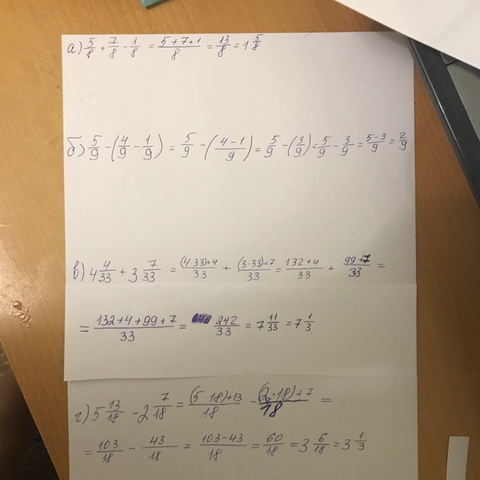 а) 5/8 + 7/8 - 1/8 = (5+7+1)/8 = 13/8 = 1 5/8
б) 5/9 - (4/9 - 1/9) = 5/9 - ((4-1)/9) = 5/9 - (3/9) = 5/9 - 3/9 = (5-3)/9 = 2/9
в) 4 4/33 + 3 7/33 = ((4·33)+4)/33 + ((3·33)+7)/33 = (132+4)/33 + (99+7)/33 =
= (132+4+99+7)/33 = 242/33 = 7 11/33 = 7 1/3
г) 5 13/18 - 2 7/18 = ((5·18)+13)/18 - ((2·18)+7)/18 =
= 103/18 - 43/18 = (103-43)/18 = 60/18 = 3 6/18 = 3 1/3